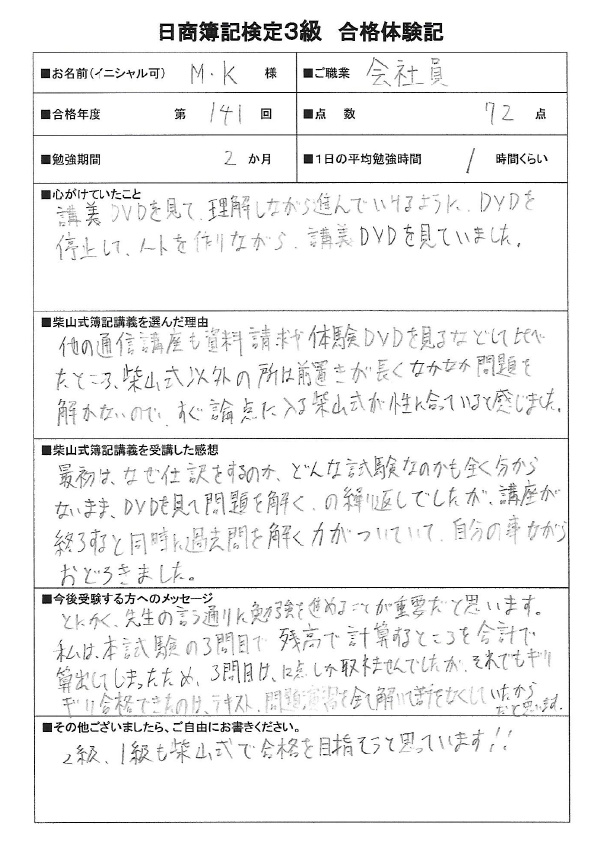 日商簿記検定3級 合格体験記
■お名前(イニシャル可) M・K 様 ■ご職業 会社員
■合格年度 第 141 回 ■点 数 72 点
■勉強期間 2 か月 ■1日の平均勉強時間 1 時間くらい
■心がけていたこと
講義DVDを見て、理解しながら進んでいけるように、DVDを
停止して、ノートを作りながら、講義DVDを見ていました。
■柴山式簿記講義を選んだ理由
他の通信講座も資料請求や体験DVDを見るなどして比べ
たところ、柴山式以外の所は前置きが長くなかなか問題を
解かないので、すぐ論点に入る柴山式が性に合っていると感じました。
■柴山式簿記講義を受講した感想
最初は、なぜ仕訳をするのか、どんな試験なのかも全く分から
ないまま、DVDを見て問題を解く、の繰り返しでしたが、講座が
終了すると同時に過去問を解く力がついていて、自分の事ながら
おどろきました。
■今後受験する方へのメッセージ
とにかく、先生の言う通りに勉強を進めることが重要だと思います。
私は、本試験の3問目で残高で計算するところを合計で
算出してしまったため、3問目は、12点しか取れませんでしたが、それでもギリ
ギリ合格できたのは、テキスト、問題演習を全て解いて苦手をなくしていたから
だと思います。
■その他ございましたら、ご自由にお書きください。
2級、1級も柴山式で合格を目指そうと思っています!!